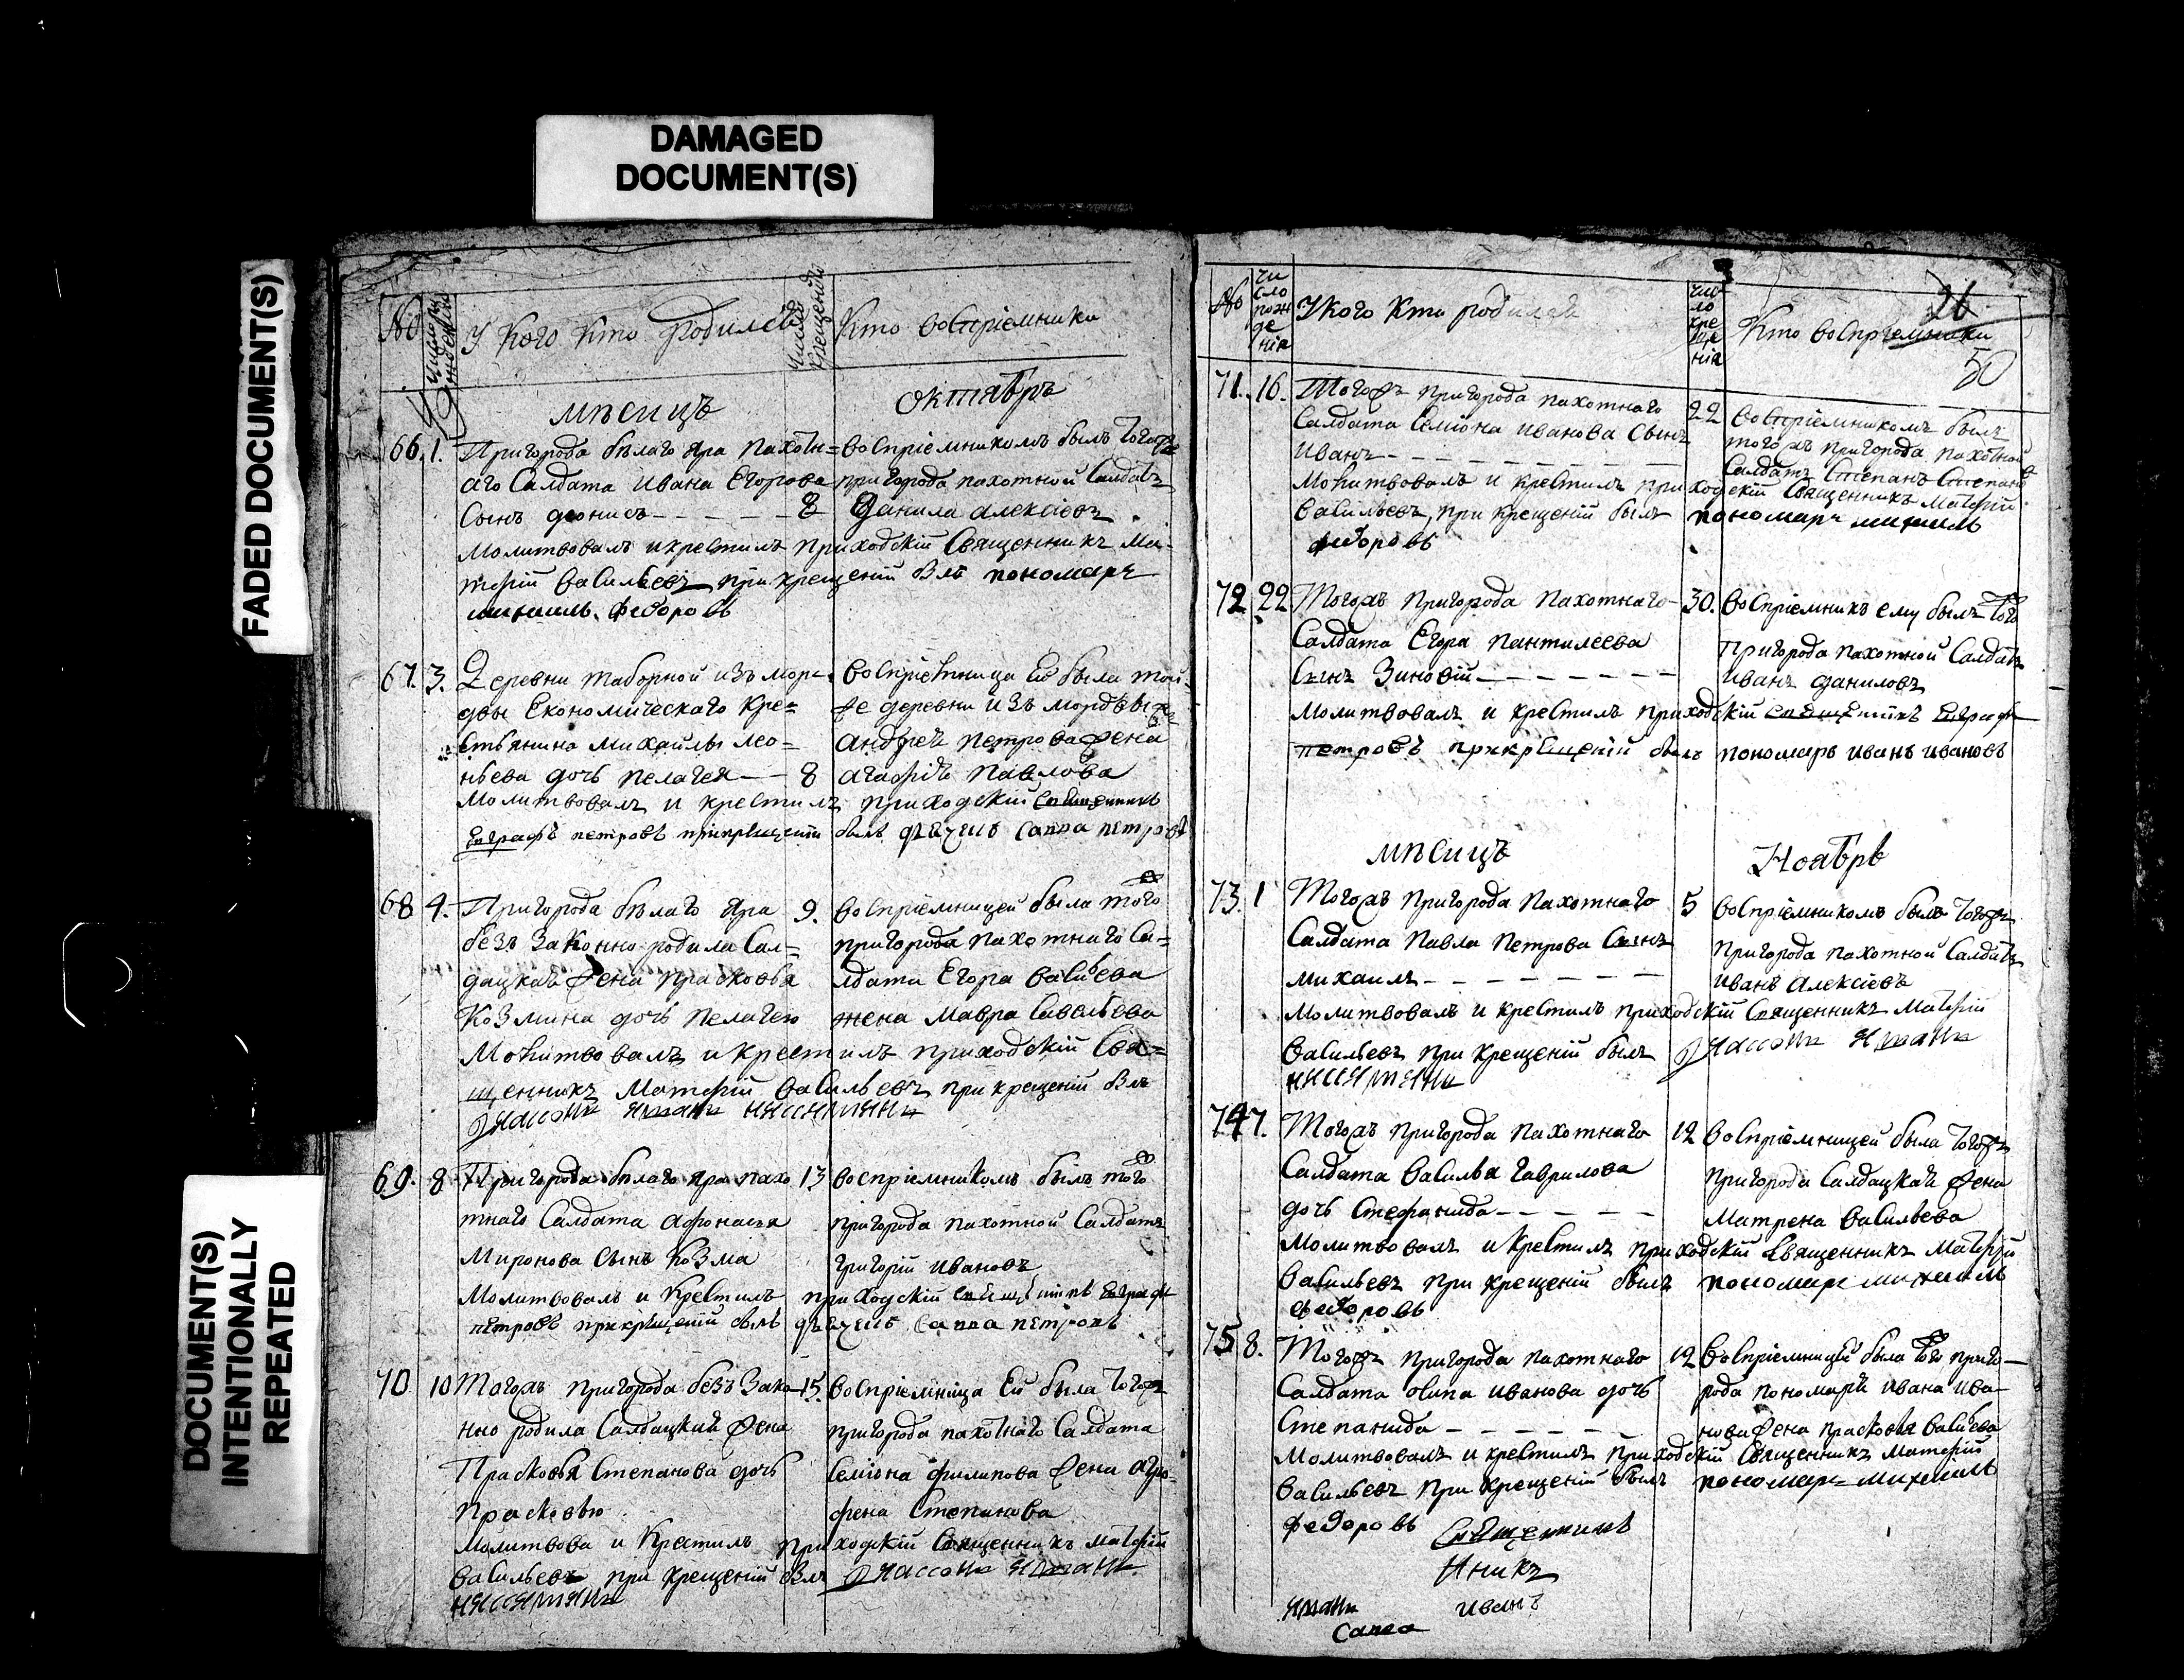 DAMAGED
DOCUMENT(S)
FADED DOCUMENT(S)
DOCUMENT(S)
INTENTIONALLY
REPEATED
№
У кого кто родился
число крещенія
Кто воспріемники
мѣсяцъ
октябрь
66. 1. Пригорода бѣлаго Яра пахотн= воспріемникомъ былъ тогожъ
аго Салдата Ивана Егорова пригорода пахотной Салдатъ
Сынъ деонисъ - - - - - 8 Данила алексіевъ
молитвовалъ и крестилъ приходскій Священникъ Ма-
тфій Васильевъ при крещеніи былъ пономарь
михаилъ федоровъ
67. 3. Деревни таборной изъ морд- воспріемница Ей была той-
вы Економическаго Кре= же деревни изъ мордвы
стьянина михайлы лео= андрея петрова жена
ньева дочь пелагея - - 8 агафія павлова
молитвовалъ и крестилъ приходскій священникъ
Евграфъ петровъ прикрещеніи былъ дьячекъ савва петровъ
68 4. Пригорода бѣлаго Яра 9. воспріемницей была тогожъ
безъ законно родила Сал= пригорода пахотнаго Са=
дацкая жена прасковья лдата Егора васильева
Козмина дочь пелагею жена мавра савельева
Молитвовалъ и крестилъ приходскій Свя=
щенникъ Матфій васильевъ при крещеніи былъ
69. 8 Пригорода бѣлаго яра пахо 13 воспріемникомъ былъ тогожъ
тнаго Салдата афонасья пригорода пахотной Салдатъ
Миронова сынъ козма григорій ивановъ
Молитвовалъ и крестилъ приходскій священникъ Евграфъ
петровъ прикрещеніи былъ дьячекъ савва петровъ
70 10 Тогожъ пригорода безъ зако- 15. воспріемница Ей была тогожъ
нно родила Салдацкая жена пригорода пахотнаго Салдата
Прасковья Степанова дочь Семіона филипова жена агро-
прасковью фена Степанова
Молитвова и Крестилъ приходскій Священникъ матфій
васильевъ при крещеніи былъ
№
число рожденія
У кого кто родился
число крещенія
Кто воспріемники
26
50
71. 16. Тогожъ пригорода пахотнаго 22 воспріемникомъ былъ
Салдата Семіона иванова Сынъ тогожъ пригорода пахотной
Иванъ - - - - - Салдатъ Степанъ Степановъ
Молитвовалъ и крестилъ приходскій Священникъ Матфій
Васильевъ, при крещеніи былъ пономарь михаилъ
федоровъ
72 22 Тогожъ пригорода пахотнаго 30. воспріемникъ ему былъ того
Салдата Егора пантилеева пригорода пахотной Салдатъ
Сынъ Зиновій - - - - - иванъ даниловъ
молитвовалъ и крестилъ приходскій священникъ Евграфъ
петровъ прикрещеніи былъ пономарь иванъ ивановъ
мѣсяцъ
Ноябрь
73. 1 Тогожъ пригорода пахотнаго 5 воспріемникомъ былъ тогожъ
Салдата павла петрова Сынъ пригорода пахотной Салдатъ
михаилъ - - - - - иванъ алексіевъ
молитвовалъ и крестилъ приходскій Священникъ Матфій
васильевъ при крещеніи былъ
74 7. Тогожъ пригорода пахотнаго 12 воспріемницей была тогожъ
Салдата василья гаврилова пригорода Салдацкая жена
дочь стефанида - - - - - матрена васильева
молитвовалъ и крестилъ приходскій Священникъ Матфій
васильевъ при крещеніи былъ пономарь михаилъ
федоровъ
75 8. Тогожъ пригорода пахотнаго 12 воспріемницей была того приго-
Салдата осипа иванова дочь рода пономаря ивана ива-
Степанида - - - - - нова жена прасковья васильева
молитвовалъ и крестилъ приходскій Священникъ матфій
васильевъ при крещеніи былъ пономарь михаилъ
федоровъ
Священникъ
иванъ
савва